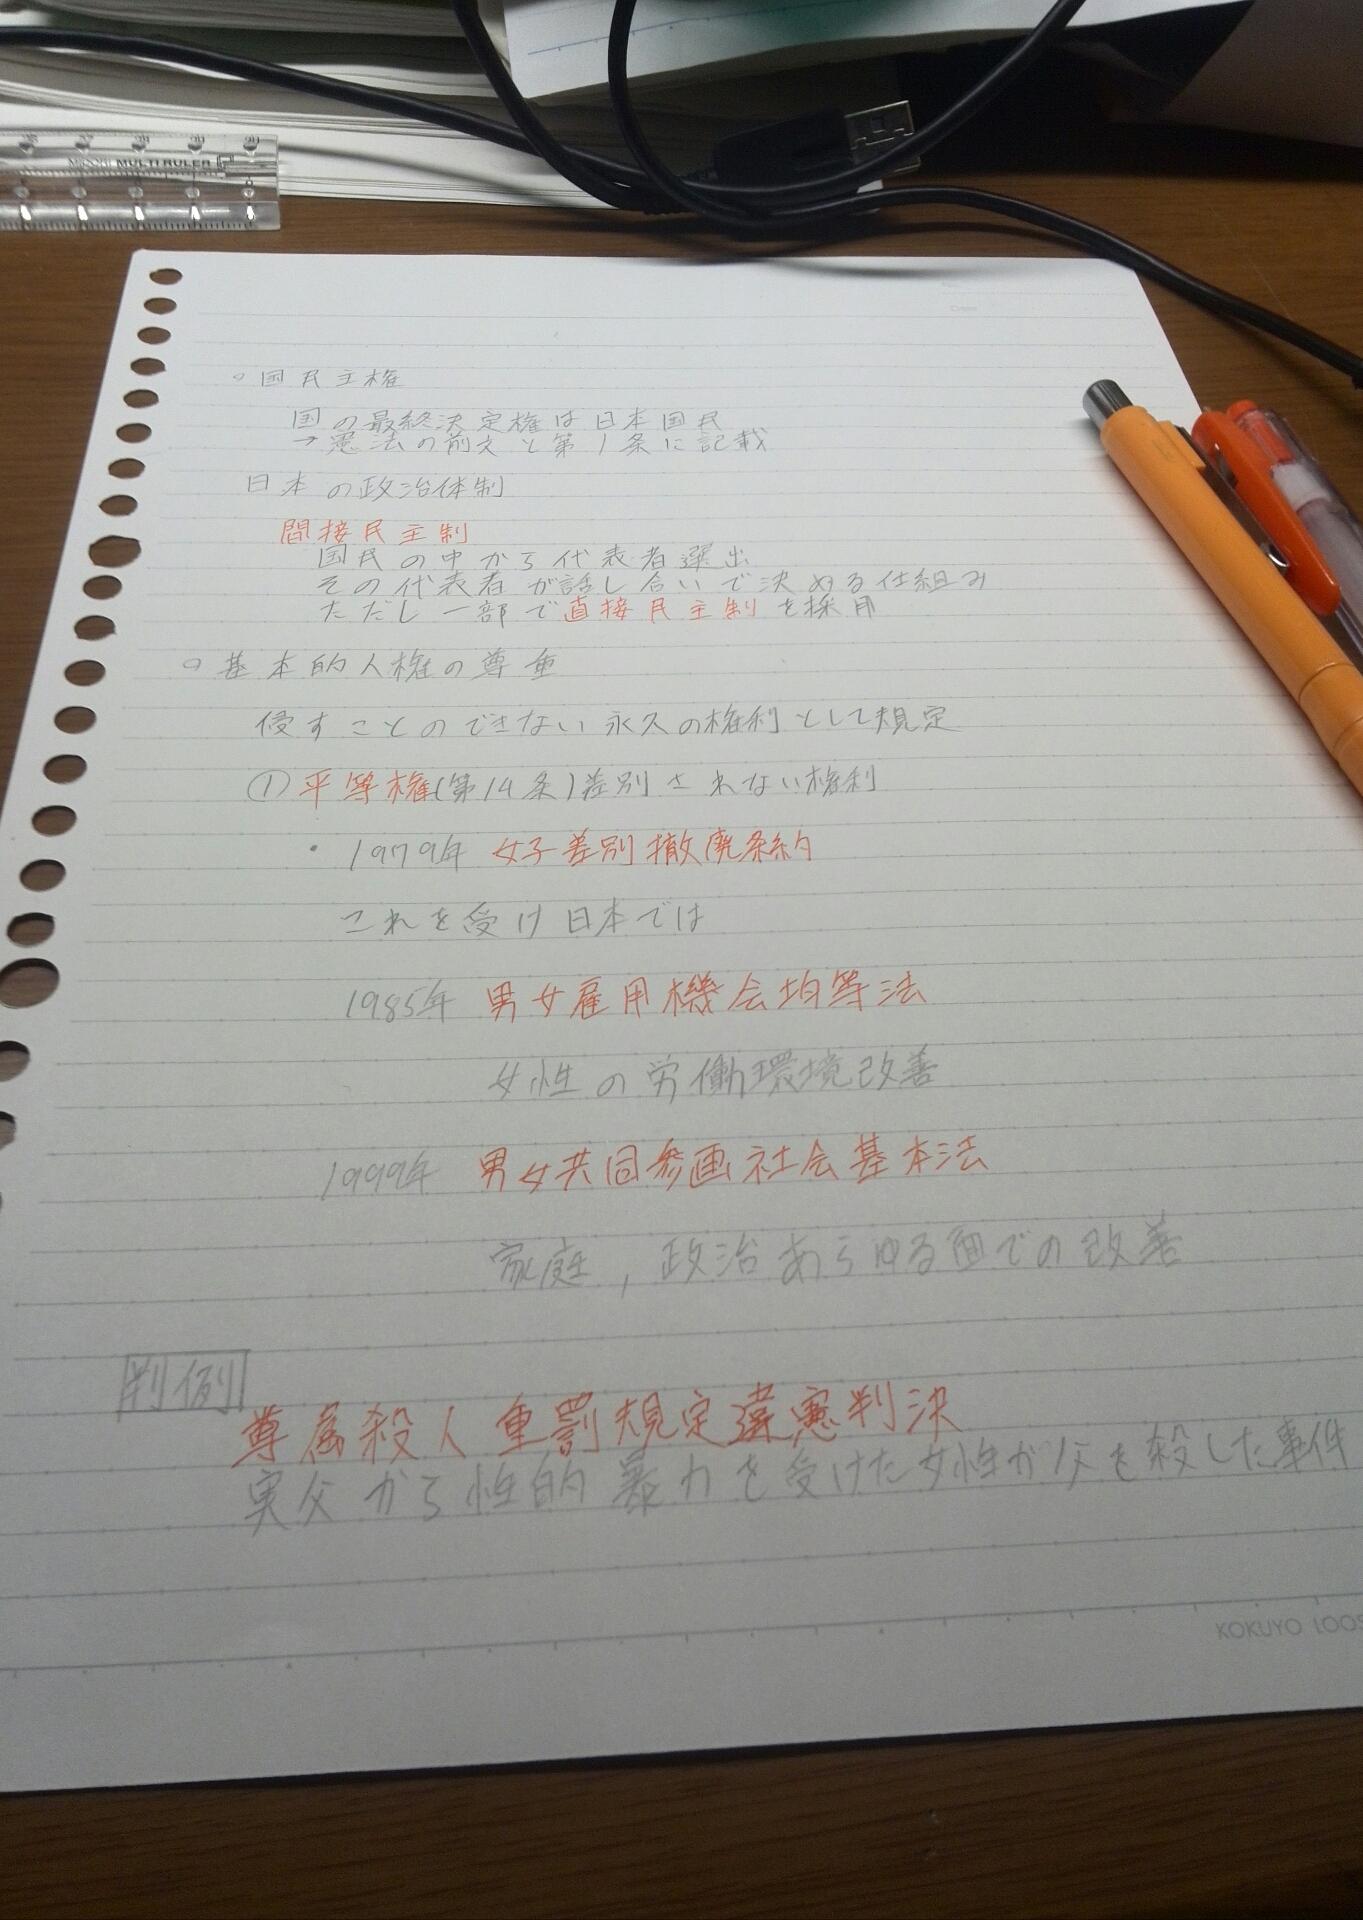 MIDORI MULTI RULER
。国民主権
国の最終決定権は日本国民
→憲法の前文と第1条に記載
日本の政治体制
間接民主制
国民の中から代表者選出
その代表者が話し合いで決める仕組み
ただし一部で直接民主制を採用
。基本的人権の尊重
侵すことのできない永久の権利として規定
①平等権(第14条)差別されない権利
・1979年 女子差別撤廃条約
これを受け日本では
1985年 男女雇用機会均等法
女性の労働環境改善
1999年 男女共同参画社会基本法
家庭,政治あらゆる面での改善
判例
尊属殺人重罰規定違憲判決
実父から性的暴力を受けた女性が父を殺した事件
KOKUYO LOOS